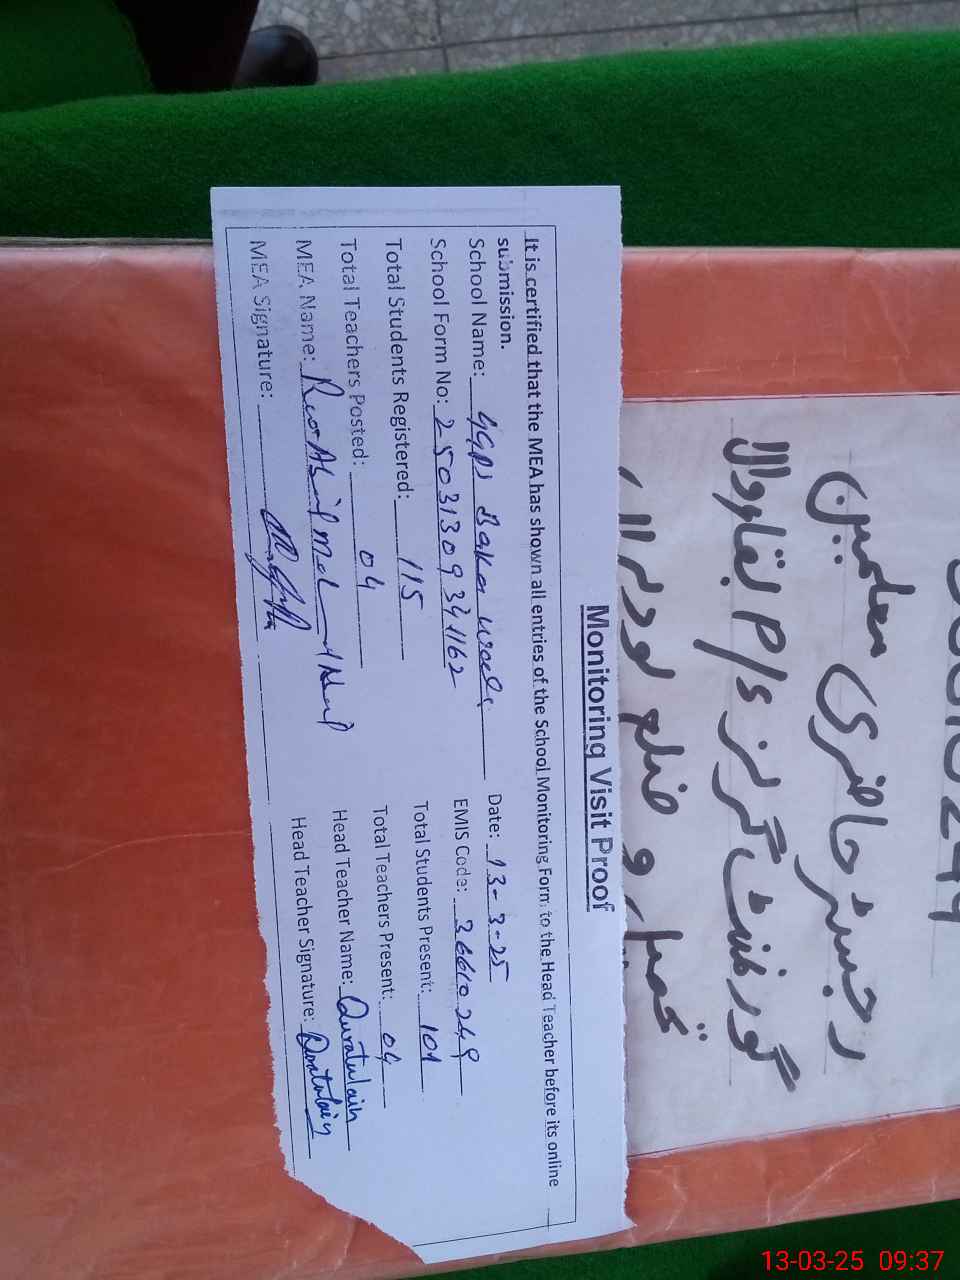 Monitoring Visit Proof
It is certified that the MEA has shown all entries of the School Monitoring Form to the Head Teacher before its online
submission.
School Name: GGPS Baqa wala Date: 13-3-25
School Form No: 2503130934 1162 EMIS Code: 36610249
Total Students Registered: 115 Total Students Present: 101
Total Teachers Posted: 04 Total Teachers Present: 04
MEA Name: Head Teacher Name: Quratulain
MEA Signature: Head Teacher Signature: Quratulain
رجسٹر حاضری معلمین
گورنمنٹ گرلز P/S بقاوالا
تحصیل و ضلع لودہراں
13-03-25 09:37